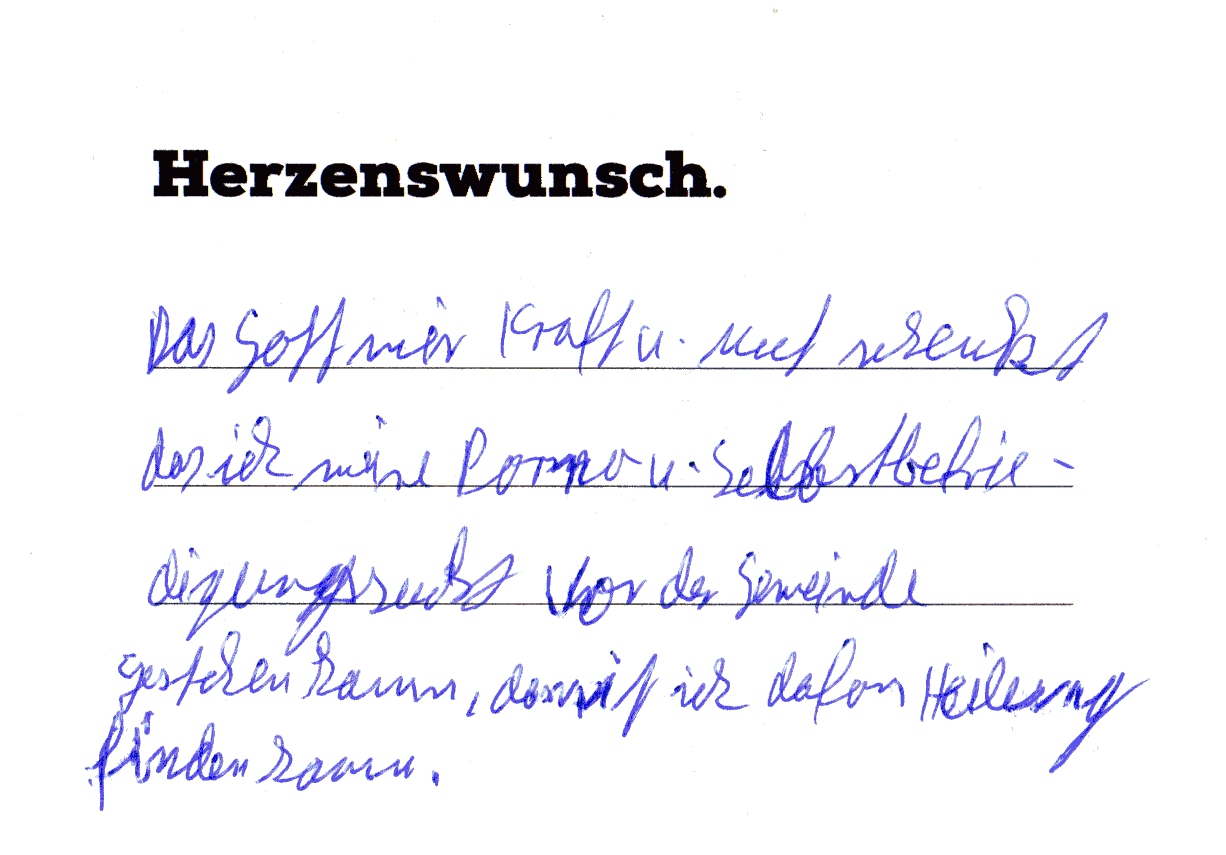 Herzenswunsch.
Das Gott mir Kraft u. Mut schenkt
das ich meine Porno u. Selbstbefrie-
digungssucht vor der Gemeinde
gestehen kann, damit ich dafon Heilung
finden kann.